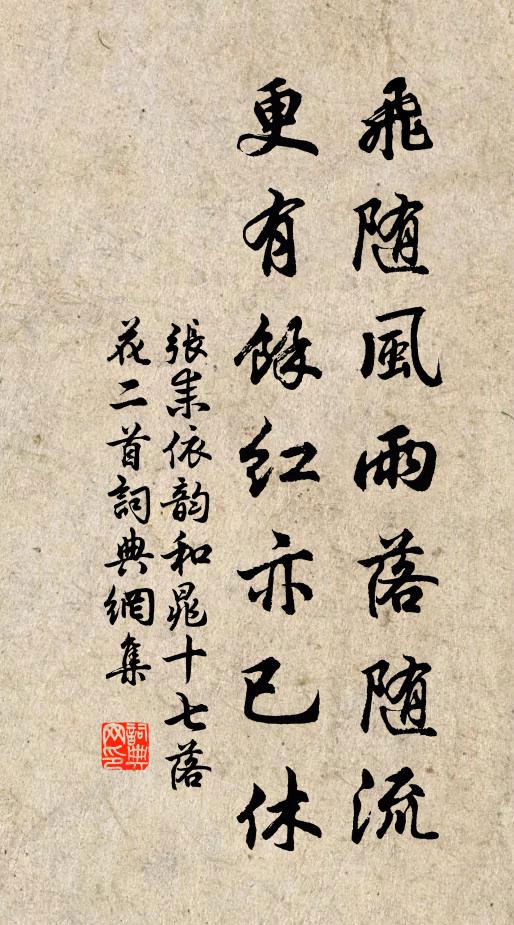 飛随風雨落随流
更有餘红亦已休
張耒依韵和晁十七落
花二首詞典網集
詞典
网印